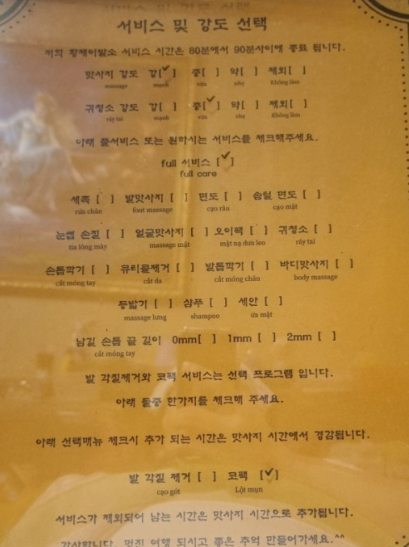 서비스 및 강도 선택
저희 황제이발소 서비스 시간은 80분에서 90분사이에 종료 됩니다.
맛사지 강도 강[✓] 중[ ] 약[ ] 제외[ ]
massage mạnh vừa nhẹ không làm
귀청소 강도 강[ ] 중[✓] 약[ ] 제외[ ]
ráy tai mạnh vừa nhẹ không làm
아래 풀서비스 또는 원하시는 서비스를 체크해주세요.
full 서비스 [✓]
full care
세족 [ ] 발맛사지 [ ] 면도 [ ] 솜털 면도 [ ]
rửa chân foot massage cạo râu cạo mặt
눈썹 손질 [ ] 얼굴맛사지 [ ] 오이팩 [ ] 귀청소 [ ]
tỉa lông mày massage mặt mặt nạ dưa leo ráy tai
손톱깍기 [ ] 큐티클제거 [ ] 발톱깍기 [ ] 바디맛사지 [ ]
cắt móng tay cắt da cắt móng chân body massage
등밟기 [ ] 샴푸 [ ] 세안 [ ]
massage lưng shampoo rửa mặt
남길 손톱 끝 길이 0mm[ ] 1mm [ ] 2mm [ ]
cắt móng tay
발 각질제거와 코팩 서비스는 선택 프로그램 입니다.
아래 둘중 한가지를 체크해 주세요.
아래 선택매뉴 체크시 추가 되는 시간은 맛사지 시간에서 경감됩니다.
발 각질 제거 [ ] 코팩 [✓]
cạo gót Lột mụn
서비스가 제외되어 남는 시간은 맛사지 시간으로 추가됩니다.
감사합니다. 멋진 여행 되시고 좋은 추억 만들어가세요.^^